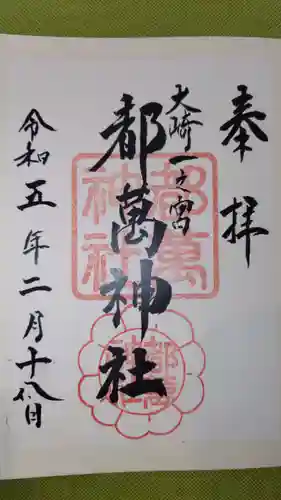 奉拝
大崎一之宮
都萬神社
令和五年二月十八日
都萬
神社